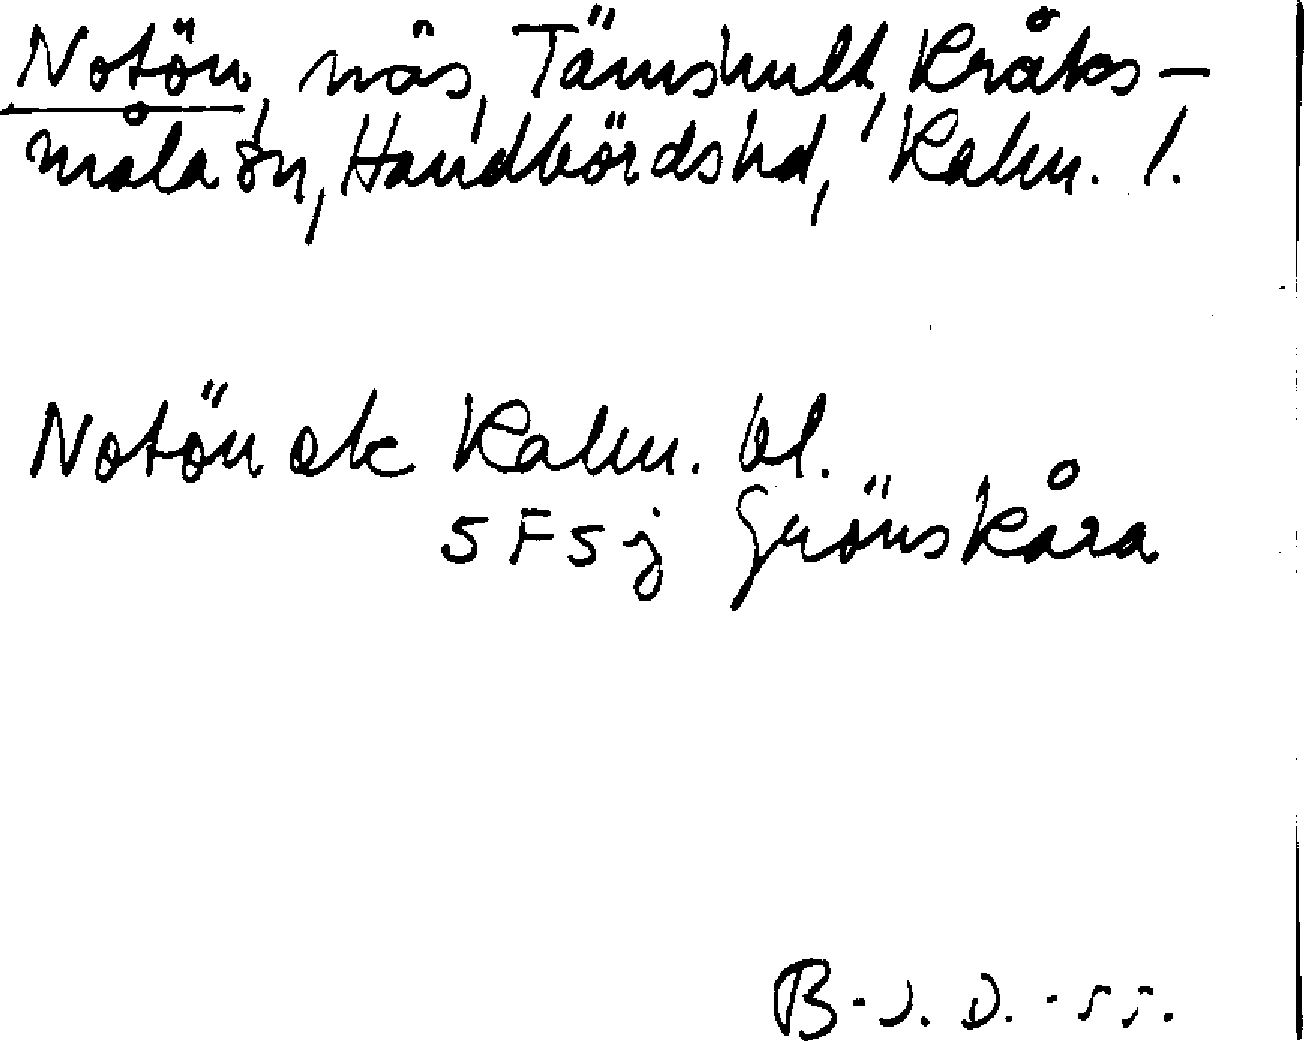 Notön, näs, Tämshult, Kråks-
måla sn, Handbörds hd, Kalm. l.
Notön ek Kalm. bl.
5 F 5 j Grönskåra
B-J. D. -55.